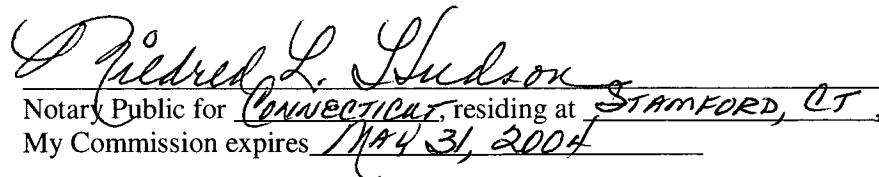 Mildred L. Hudson
Notary Public for CONNECTICUT, residing at STAMFORD, CT,
My Commission expires MAY 31, 2004